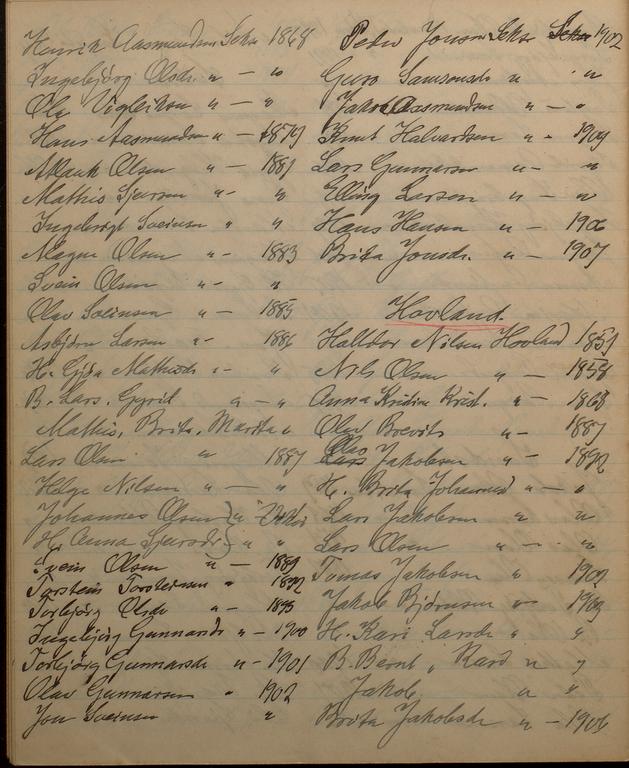 Henrik Aasmundsen Sekse 1868
Ingebjörg Olsdr. " — "
Ola Vigleiksen " — "
Hans Aasmundsen " — 1879
Olsen " — 1881
Mathis Sjursen " - "
Ingebrigt Sveinsen " "
Magne Olsen " — 1883
Svein Olsen " - "
Olav Sveinsen " - 1885
Asbjörn Larsen " - 1886
H. Gjöa Mathisdr " - "
B. Lars, Gyrid " — "
Mathis, Brita, Marita "
Lars Olsen " 1887
Helge Nilsen " — "
Johannes Olsen } "
H. Anna Sjursdr } " "
Svein Olsen " — 1889
Torstein Torsteinsen " 1892
Torbjörg Olsdr " — 1895
Ingebjörg Gunnarsdr " — 1900
Torbjörg Gunnarsdr " - 1901
Olav Gunnarsen " 1902
Jon Sveinsen "
Peder Jonsen Sekse 1902
Guro Samsonsdr " "
Jakob Aasmundsen " - "
Knut Halvardsen " - 1904
Lars Gunnarsen " - "
Elling Larsen " - "
Hans Hansen " — 1906
Brita Jonsdr. " — 1907
Hovland.
Halldor Nilsen Hovland 1851
Nils Olsen " — 1858
Anna Kristine Krist. " — 1868
Olav Brevik " - 1887
Olav Jakobsen " - 1892
H. Brita Johannesd " — "
Lars Jakobsen " "
Lars Olsen " — "
Tomas Jakobsen " 1902
Jakob Björnsen " 1903
H. Kari Larsdr " "
B. Bernt, Kard " "
Jakob " "
Brita Jakobsdr " — 1906